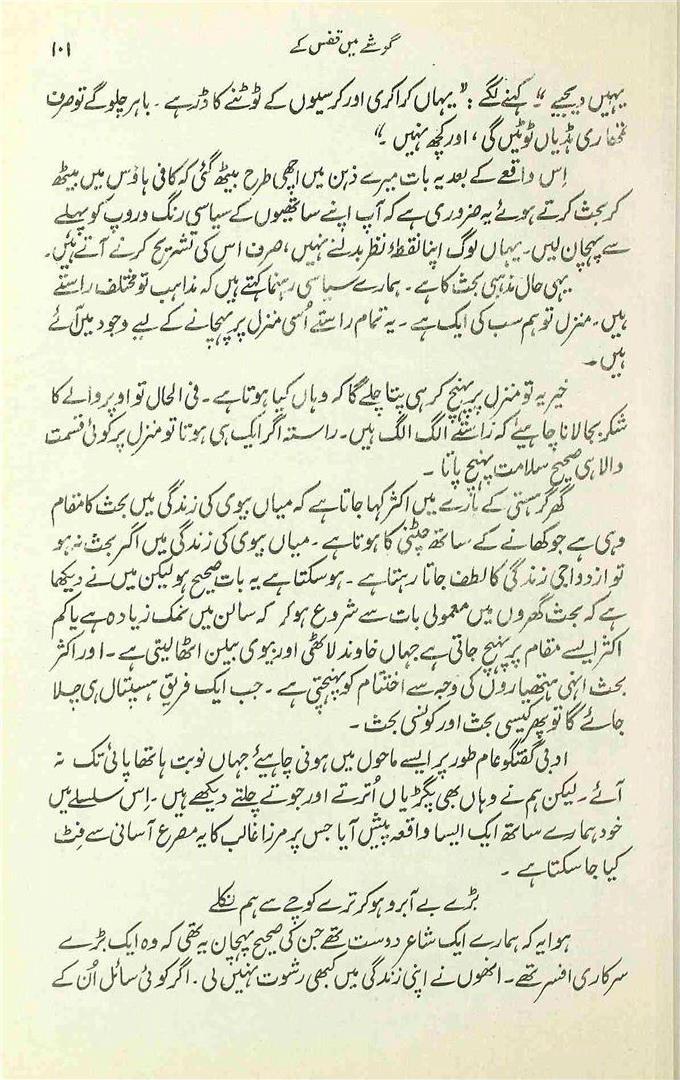 گوشے میں قفس کے ۱۰۱
یہیں دیجیے“۔ کہنے لگے: ”یہاں کراکری اور کرسیوں کے ٹوٹنے کا ڈر ہے۔ باہر چلو گے تو صرف
تمھاری ہڈیاں ٹوٹیں گی، اور کچھ نہیں۔“
اِس واقعے کے بعد یہ بات میرے ذہن میں اچھی طرح بیٹھ گئی کہ کافی ہاؤس میں بیٹھ
کر بحث کرتے ہوئے یہ ضروری ہے کہ آپ اپنے ساتھیوں کے سیاسی رنگ و روپ کو پہلے
سے پہچان لیں۔ یہاں لوگ اپنا نقطۂ نظر بدلنے نہیں، صرف اس کی تشریح کرنے آتے ہیں۔
یہی حال مذہبی بحث کا ہے۔ ہمارے سیاسی رہنما کہتے ہیں کہ مذاہب تو مختلف راستے
ہیں۔ منزل تو ہم سب کی ایک ہے۔ یہ تمام راستے اُسی منزل پر پہچانے کے لیے وجود میں آئے
ہیں۔
خیر یہ تو منزل پر پہنچ کر ہی پتا چلے گا کہ وہاں کیا ہوتا ہے۔ فی الحال تو اوپر والے کا
شکر بجا لانا چاہیئے کہ راستے الگ الگ ہیں۔ راستہ اگر ایک ہی ہوتا تو منزل پر کوئی قسمت
والا ہی صحیح سلامت پہنچ پاتا۔
گھر گرہستی کے بارے میں اکثر کہا جاتا ہے کہ میاں بیوی کی زندگی میں بحث کا مقام
وہی ہے جو کھانے کے ساتھ چٹنی کا ہوتا ہے۔ میاں بیوی کی زندگی میں اگر بحث نہ ہو
تو ازدواجی زندگی کا لطف جاتا رہتا ہے۔ ہو سکتا ہے یہ بات صحیح ہو لیکن میں نے دیکھا
ہے کہ بحث گھروں میں معمولی بات سے شروع ہو کر کہ سالن میں نمک زیادہ ہے یا کم
اکثر ایسے مقام پر پہنچ جاتی ہے جہاں خاوند لاٹھی اور بیوی بیلن اٹھا لیتی ہے۔ اور اکثر
بحث انہی ہتھیاروں کی وجہ سے اختتام کو پہنچتی ہے۔ جب ایک فریق ہسپتال ہی چلا
جائے گا تو پھر کیسی بحث اور کونسی بحث۔
ادبی گفتگو عام طور پر ایسے ماحول میں ہونی چاہیئے جہاں نوبت ہاتھا پائی تک نہ
آئے۔ لیکن ہم نے وہاں بھی پگڑیاں اُترتے اور جوتے چلتے دیکھے ہیں۔ اِس سلسلے میں
خود ہمارے ساتھ ایک ایسا واقعہ پیش آیا جس پر مرزا غالب کا یہ مصرع آسانی سے فِٹ
کیا جا سکتا ہے۔
بڑے بے آبرو ہو کر ترے کوچے سے ہم نکلے
ہوا یہ کہ ہمارے ایک شاعر دوست تھے جن کی صحیح پہچان یہ تھی کہ وہ ایک بڑے
سرکاری افسر تھے۔ انھوں نے اپنی زندگی میں کبھی رشوت نہیں لی۔ اگر کوئی سائل اُن کے